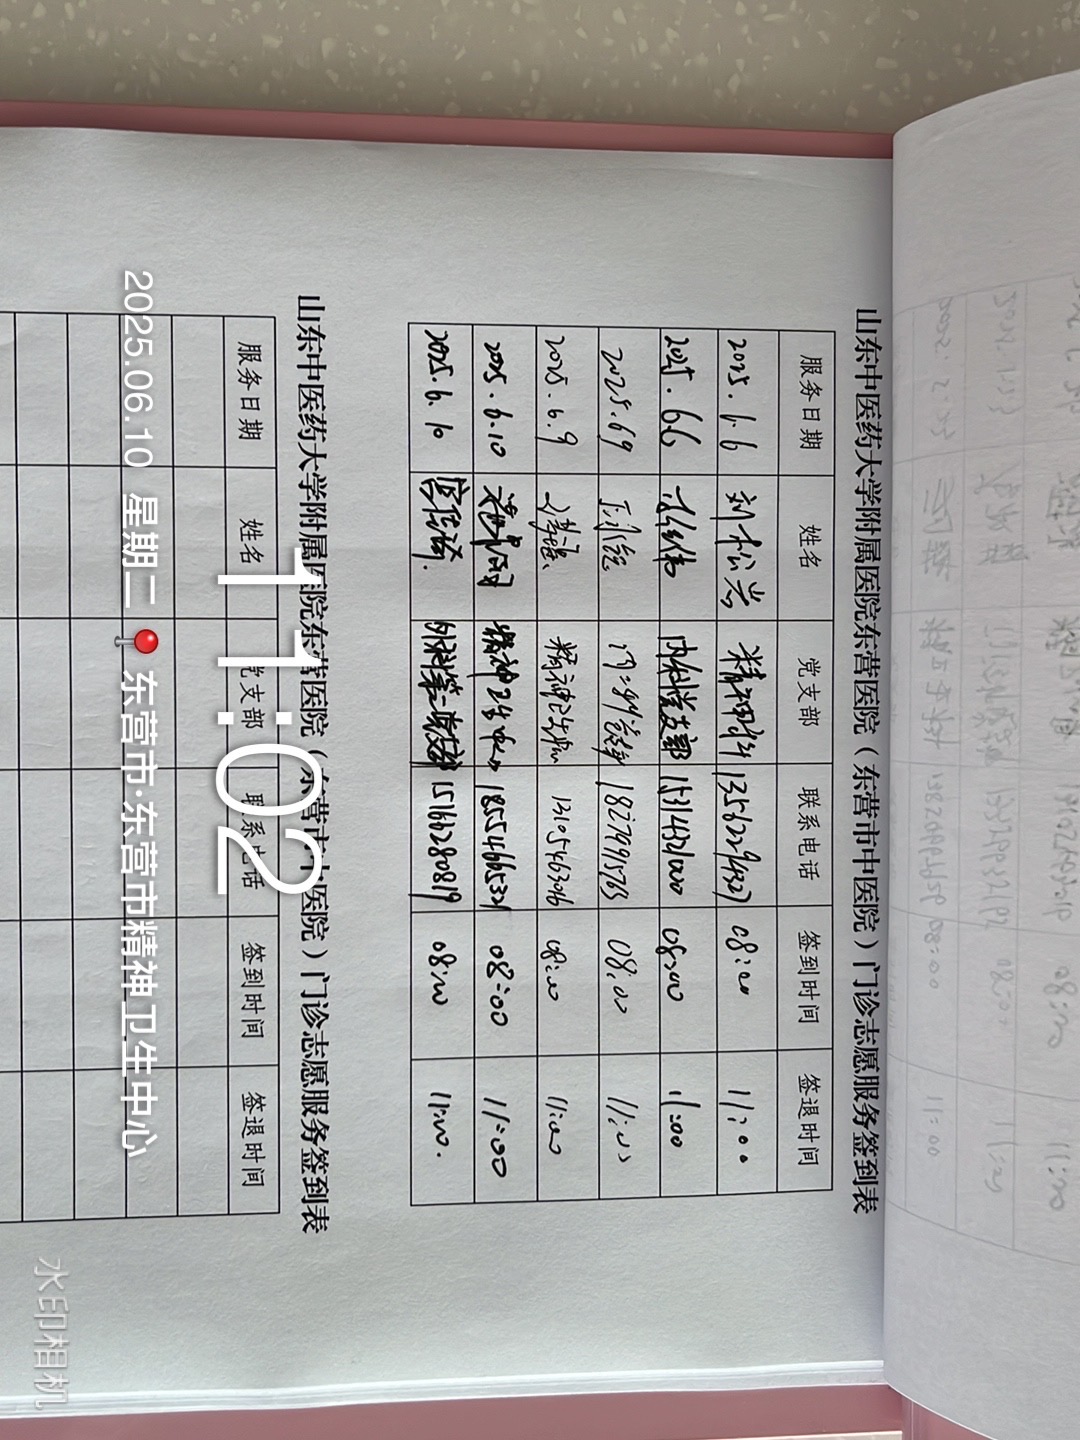 山东中医药大学附属医院东营医院（东营市中医院）门诊志愿服务签到表
服务日期 姓名 党支部 联系电话 签到时间 签退时间
2025.6.6 刘松岩 精神科 13562294327 08:00 11:00
2025.6.6 内科党支部 15314321000 08:00 11:00
2025.6.9 18279915763 08:00 11:00
2025.6.9 精神卫生 13105463096 08:00 11:00
2025.6.10 精神卫生中心 18554665321 08:00 11:00
2025.6.10 外科第二党支部 15166280819 08:00 11:00.
山东中医药大学附属医院东营医院（东营市中医院）门诊志愿服务签到表
服务日期 姓名 党支部 联系电话 签到时间 签退时间
11:02
2025.06.10 星期二 东营市·东营市精神卫生中心
水印相机